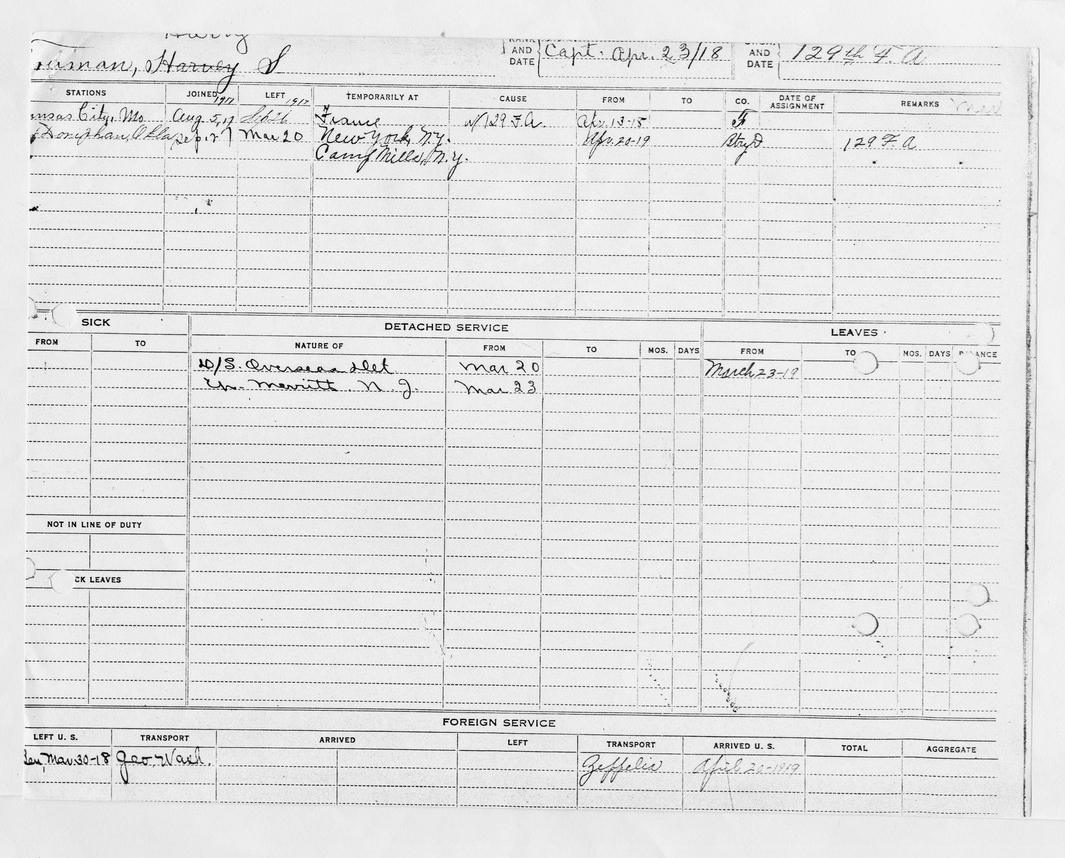 Harry
ruman, Harvey S
RANK AND DATE Capt. Apr. 23/18
AND DATE 129th F. A
STATIONS JOINED 1917 LEFT 1917 TEMPORARILY AT CAUSE FROM TO CO. DATE OF ASSIGNMENT REMARKS
nsas City, Mo Aug. 5, 17 Sep 26 France w/129 F.A. Apr. 13-18 F
Doniphan, Okla Sep. 27 Mar 20 New York, N.Y. Apr. 20-19 Btry D 129 F A
Camp Mills, N.y.
SICK DETACHED SERVICE LEAVES
FROM TO NATURE OF FROM TO MOS. DAYS FROM TO MOS. DAYS B ANCE
D/S. Overseas Det Mar 20 March 23-19
Merritt N. J. Mar 23
NOT IN LINE OF DUTY
CK LEAVES
FOREIGN SERVICE
LEFT U. S. TRANSPORT ARRIVED LEFT TRANSPORT ARRIVED U. S. TOTAL AGGREGATE
Mar. 30-18 Geo. Wash. Zeppelin April 20-1919